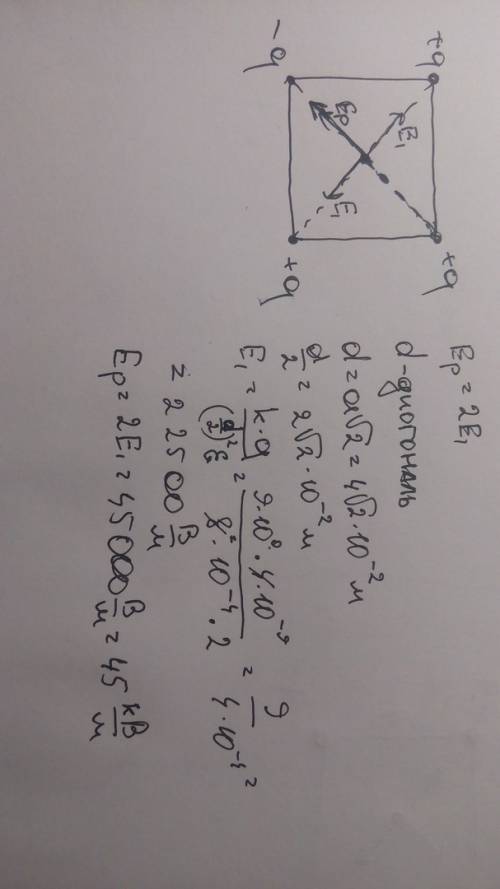 +q +q
E₁
Eр E₁
-q +q
Eр = 2E₁
d-диогональ
d = a√2 = 4√2·10⁻² м
d/2 = 2√2·10⁻² м
E₁ = k·q/((d/2)²ε) = 9·10⁹·4·10⁻⁹/(8·10⁻⁴·2) = 9/(4·10⁻⁴) =
= 22500 В/м
Eр = 2E₁ = 45000 В/м = 45 кВ/м